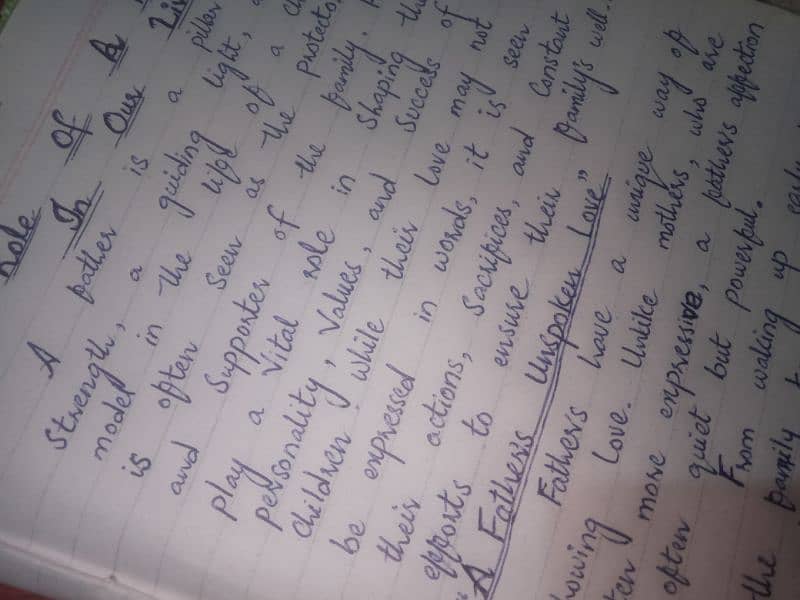 Role Of A
In Our
A father is a pillar
Strength, a guiding light,
model in the life of a
is often seen as the
and Supporter of the family.
play a Vital role in Shaping
personality, Values, and Success of
Children. while their Love may not
be expressed in words, it is seen
their actions, Sacrifices, and Constant
efforts to ensure their family's well.
"A Fathers Unspoken Love"
Fathers have a unique way of
Love. Unlike mothers, who are
more expressive, a fathers affection
often quiet but powerful.
From waking up early
the family